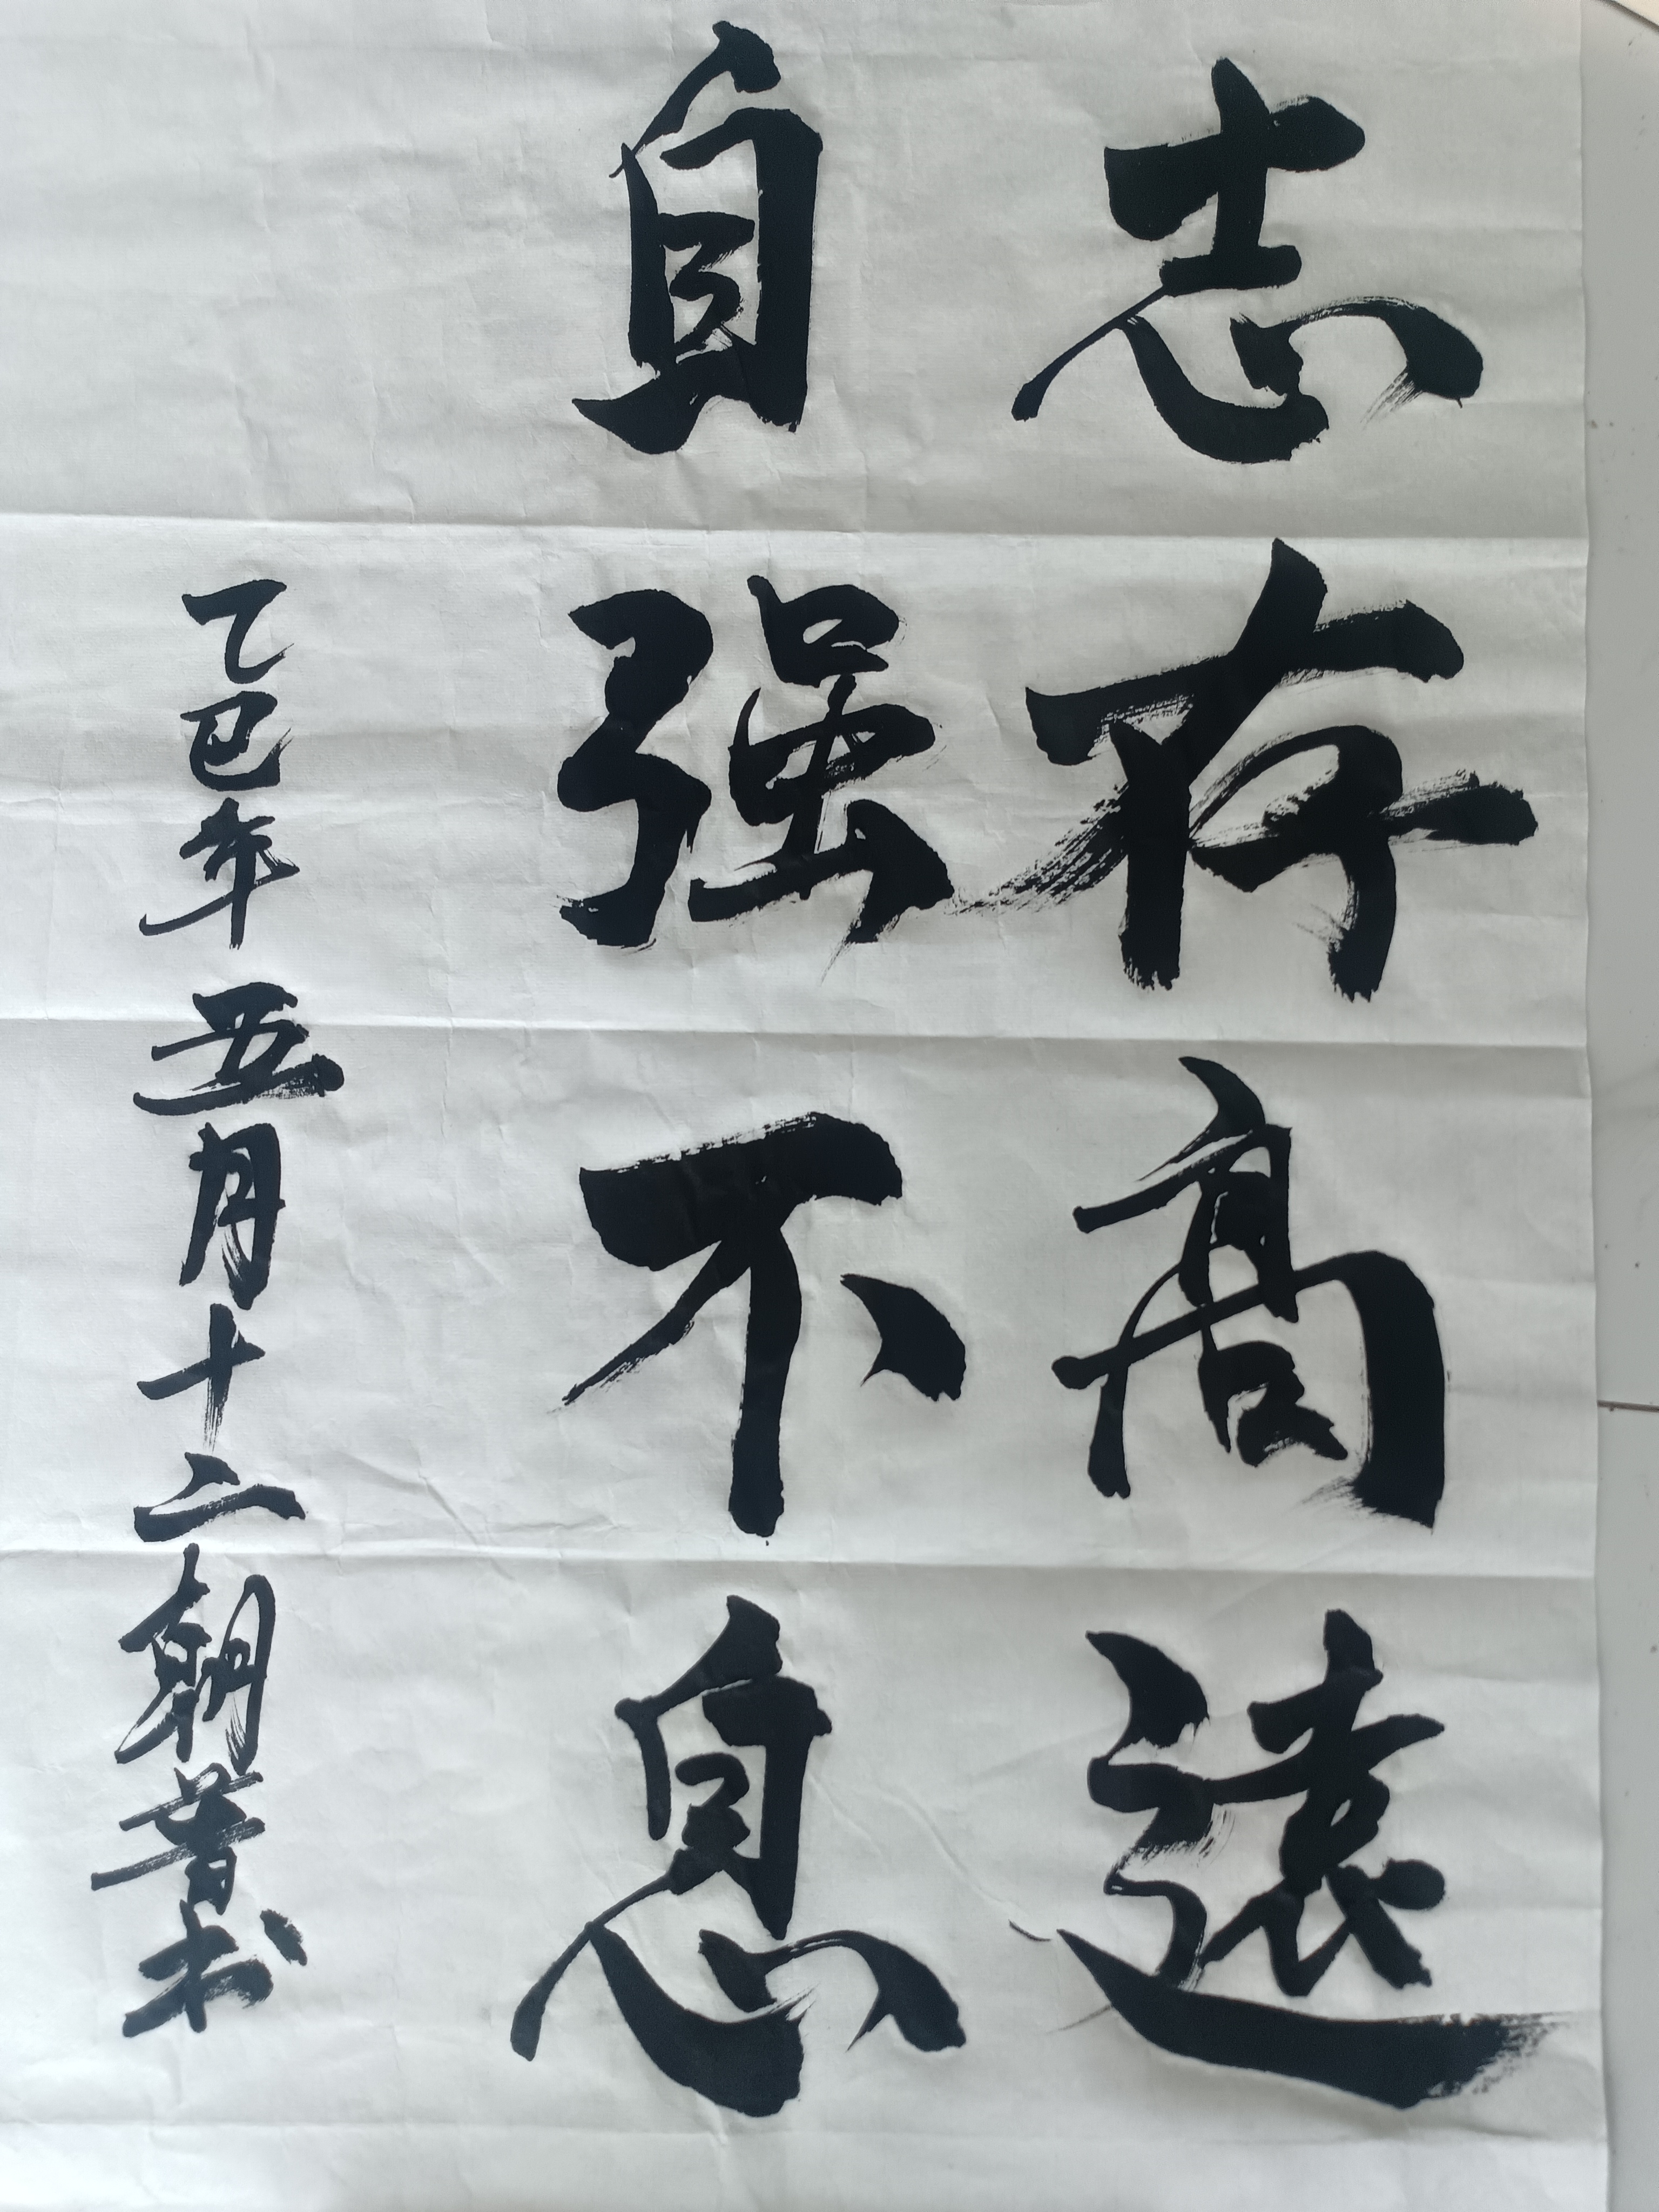 志存高遠
自强不息
乙巳年五月十二朝普书